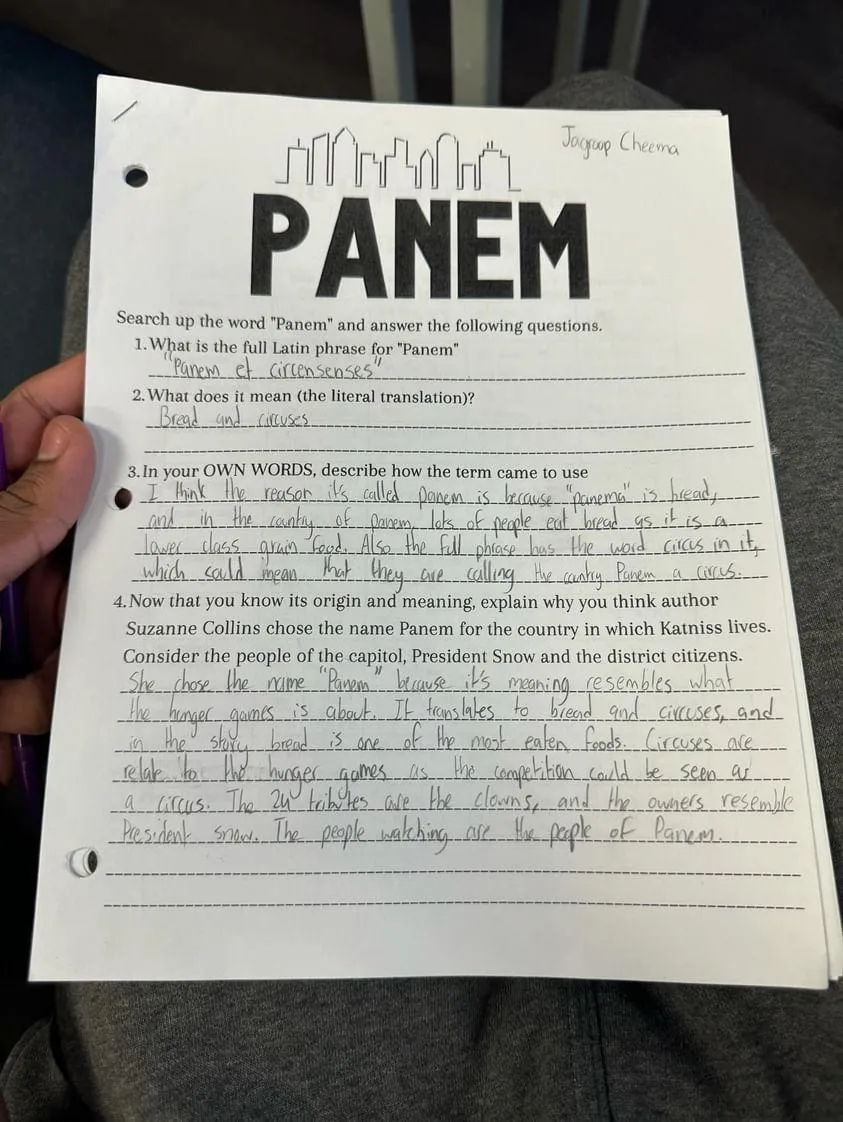 Jagroop Cheema
PANEM
Search up the word "Panem" and answer the following questions.
1. What is the full Latin phrase for "Panem"
"Panem et circensenses"
2. What does it mean (the literal translation)?
Bread and circuses
3. In your OWN WORDS, describe how the term came to use
I think the reason it's called panem is because "panema" is bread,
and in the country of panem, lots of people eat bread as it is a
lower class grain food. Also the full phrase has the word circus in it,
which could mean that they are calling the country Panem a circus.
4. Now that you know its origin and meaning, explain why you think author
Suzanne Collins chose the name Panem for the country in which Katniss lives.
Consider the people of the capitol, President Snow and the district citizens.
She chose the name "Panem" because it's meaning resembles what
the hunger games is about. It translates to bread and circuses, and
in the story bread is one of the most eaten foods. Circuses are
relate to the hunger games as the competition could be seen as
a circus. The 24 tributes are the clowns, and the owners resemble
President snow. The people watching are the people of Panem.